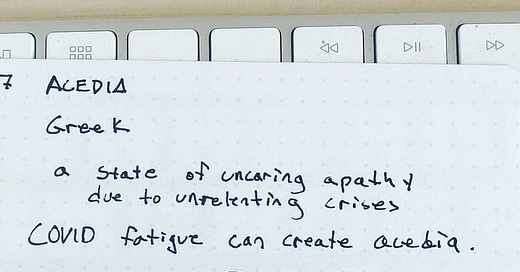 7 ACEDIA
Greek
a state of uncaring apathy
due to unrelenting crises
COVID fatigue can create acedia.